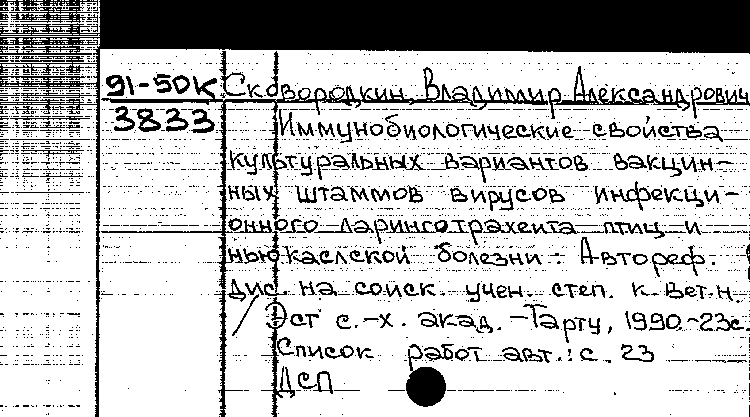 91-50К Сковородкин, Владимир Александрович
3833 Иммунобиологические свойства
культуральных вариантов вакцин-
ных штаммов вирусов инфекци-
онного ларинготрахеита птиц и
ньюкаслской болезни: Автореф.
дис. на соиск. учен. степ. к.вет.н.
Эст с.-х. акад. -Тарту, 1990.-23с.
Список работ авт.: с. 23
ДСП